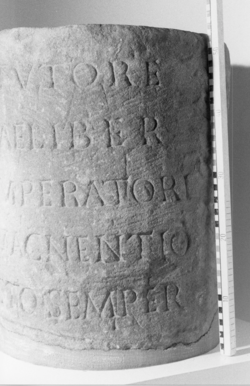 VTORE
AELIBER
MPERATORI
AGNENTIO
TOSEMPER